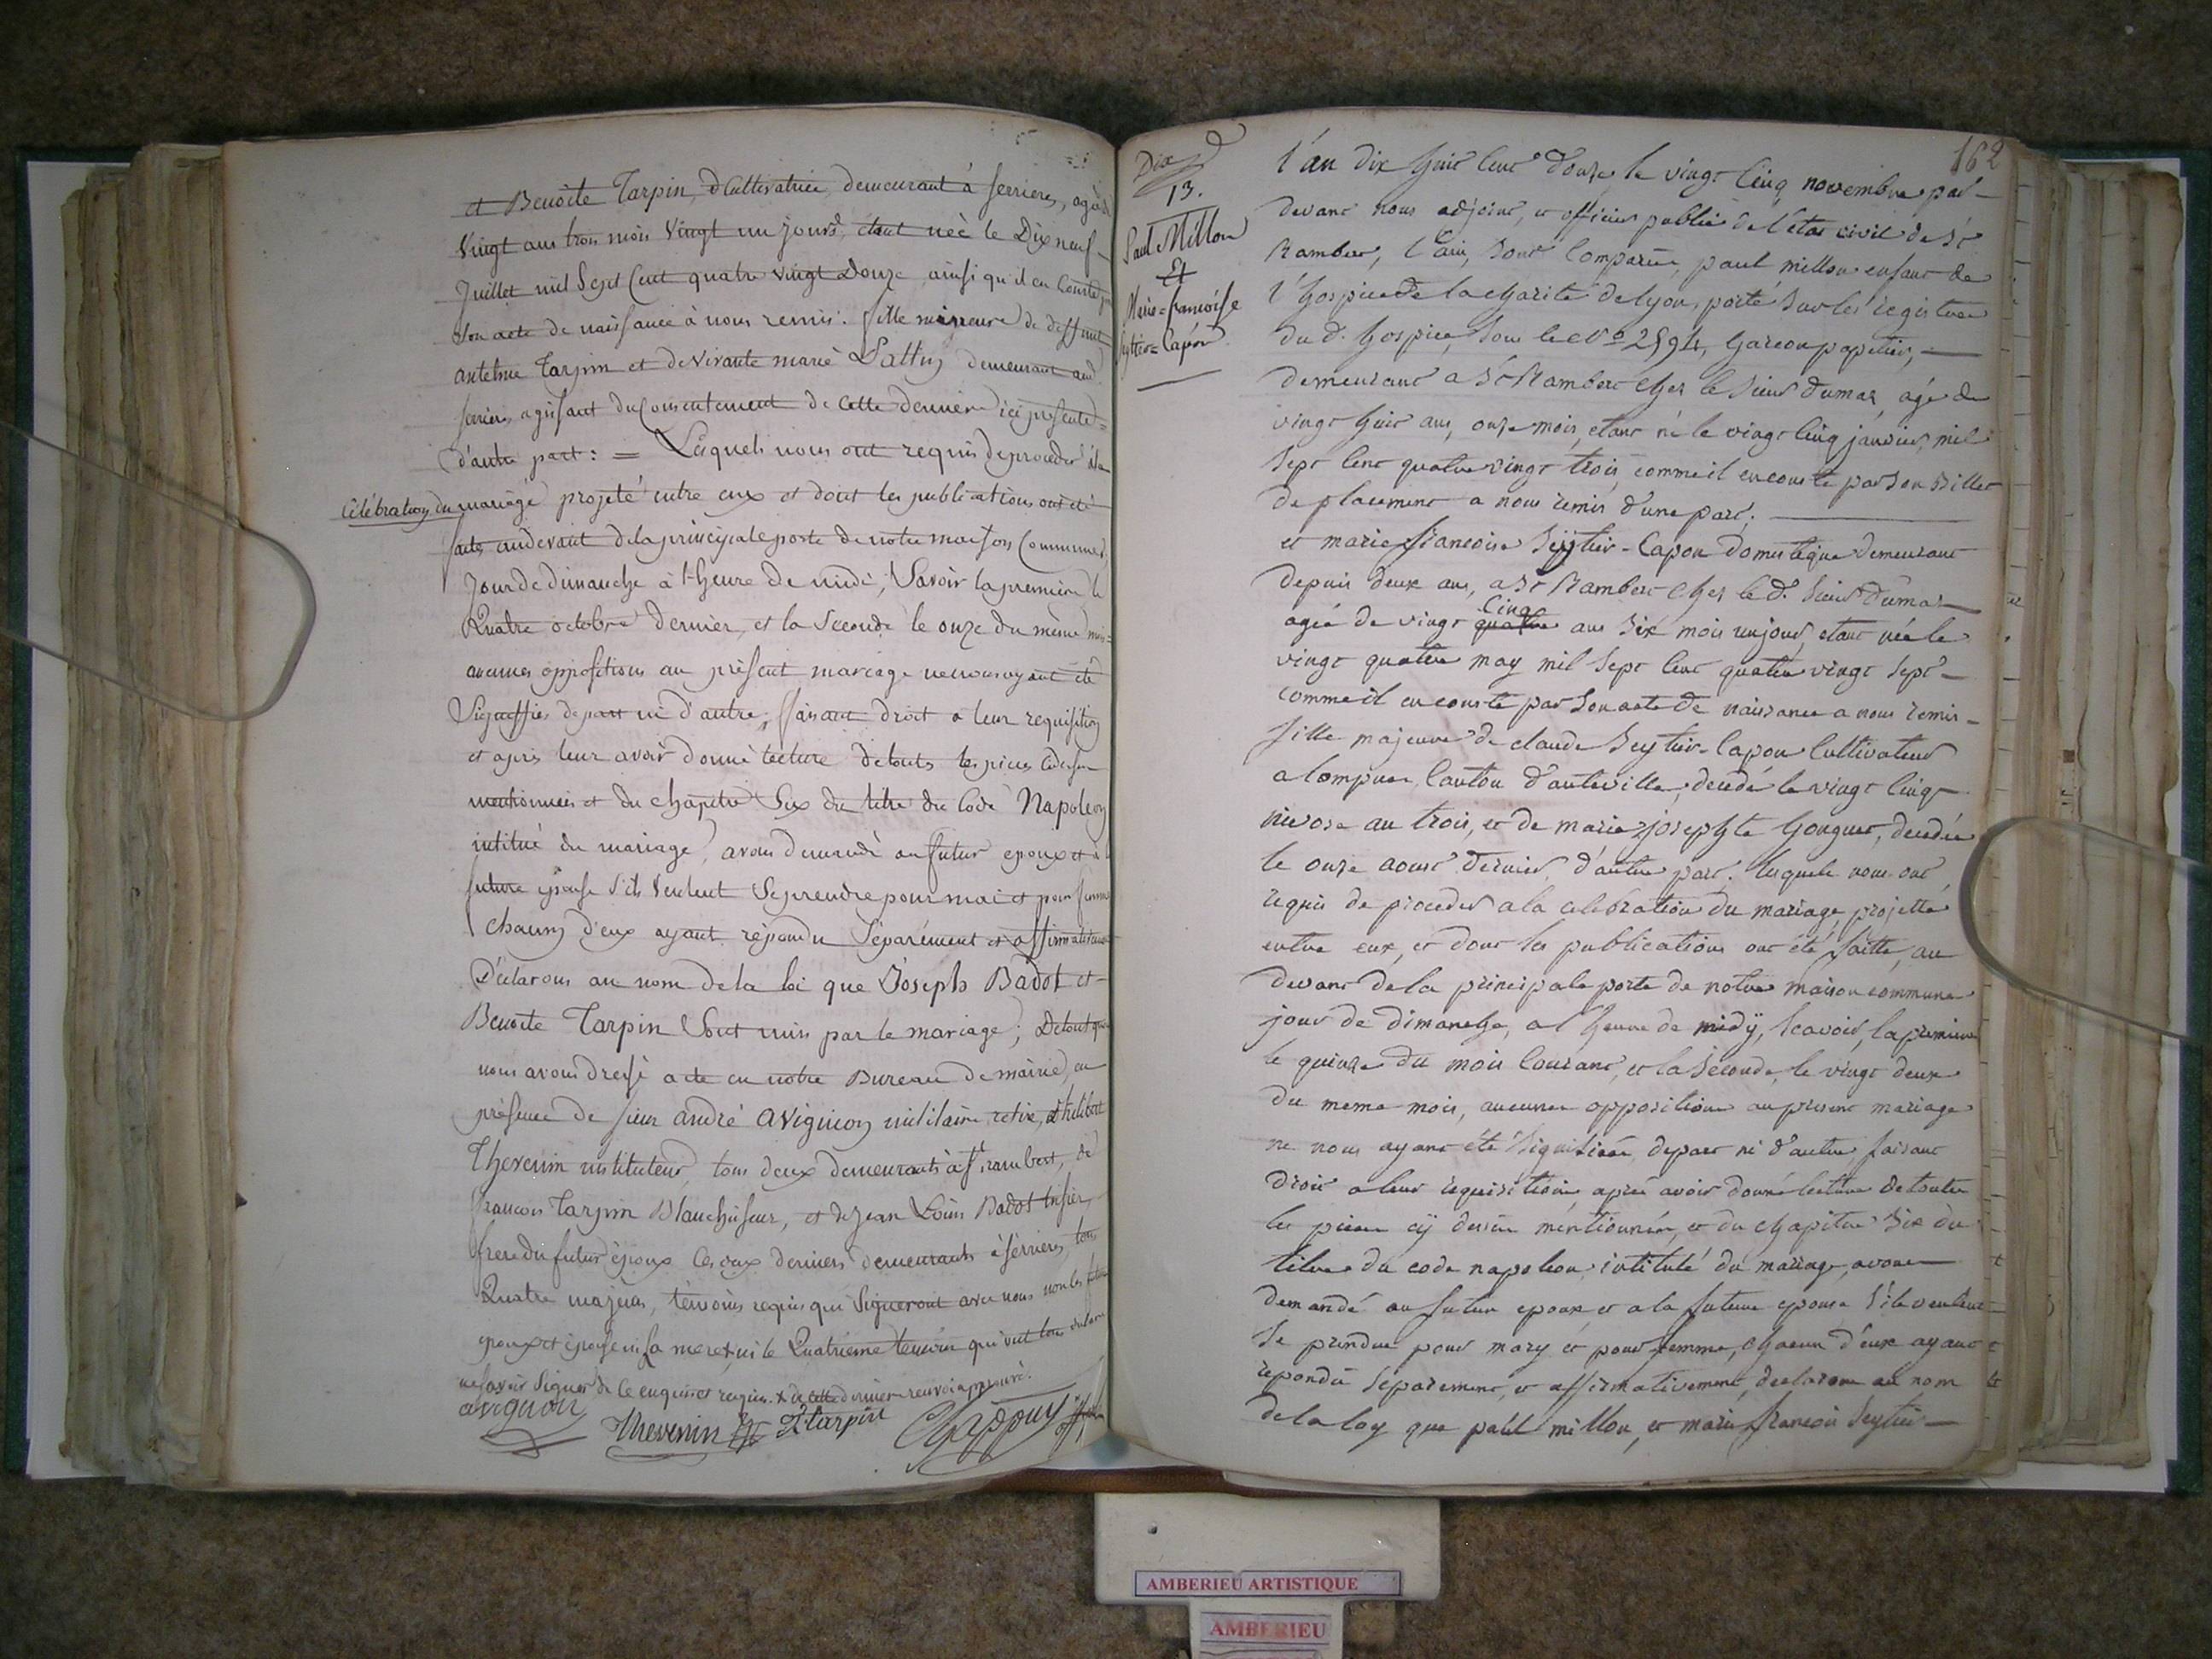 et Benoite Tarpin, Cultivatrice, demeurant à serrieres, agée de
vingt ans trois mois vingt un jours, etant née le Dix neuf
Juillet mil Sept Cent quatre vingt Douze ainsi qu'il en Conste par
son acte de naissance à nous remis. fille mineure de deffunt
antelme Tarpin et de vivante marie Lattin demeurant aud.
serrieres, agissant du Consentement de Cette derniere ici presente =
d'autre part : = Lesquels nous ont requis de proceder à la
Célébration du mariage projeté entre eux et dont les publications ont été
faites audevant de la principale porte de notre maison Commune
Jour de dimanche à l'heure de midi, Savoir la premiere le
Quatre octobre dernier, et la Seconde le onze du même mois =
aucunes oppositions au présent mariage ne nous ayant été
Signiffiées de part ni d'autre, faisant droit a leur requisition
et apres leur avoir donné lecture de toutes les pieces cidessus
mentionnées et du chapitre Six du titre du Code Napoleon
intitulé du mariage, avons demandé au futur epoux et à la
future epouse s'ils veulent se prendre pour mari et pour femme
chacun d'eux ayant répondu Séparément et affirmativement
Déclarons au nom de la loi que Joseph Badot et
Benoite Tarpin Sont unis par le mariage ; De tout quoi
nous avons dressé acte en notre Bureau de mairie, en
présence de sieur andré avignon militaire retiré, Philibert
Thevenin instituteur, tous deux demeurants à St rambert, de
francois Tarpin Blanchisseur, et de Jean Louis Badot
frere du futur époux les deux derniers demeurants à serrieres, tous
Quatre majeurs, témoins requis qui Signeront avec nous non les futurs
epoux et épouse ni sa mere + ni le Quatrieme temoin qui ont tous declaré
ne savoir Signer de ce enquis et requis. + de cette derniere renvoi approuvé.
avignon
Thevenin
F tarpin
Chappuy adjoint
162
Dix
13.
Paul Millon
Et
Marie = francoise
Seytier = Capon
l'an dix huit Cent douze le vingt Cinq novembre par-
devant nous adjoint, et officier public de l'état civil de St
Rambert, l'ain, sont Comparus, paul millon enfant de
l'hospice de la charité de lyon, porté sur les registres
du d. hospice, sous le No 2594, garçon papetier,
demeurant a St Rambert chez le Sieur dumas, agé de
vingt huit ans, onze mois, etant né le vingt Cinq janvier, mil
Sept Cent quatre vingt trois, comme il en conste par son Billet
de placement a nous remis d'une part.
et marie francoise Seytier-Capon domestique demeurant
depuis deux ans, a St Rambert chez le d. Sieur dumas
agée de vingt quatre Cinq ans Six mois un jour, etant née le
vingt quatre may mil Sept Cent quatre vingt Sept -
comme il en conste par son acte de naissance a nous remis -
fille majeure de claude Seytier-Capon Cultivateur
a lompnes, Canton d'auteville, decedé le vingt Cinq
nivose an trois, et de marie josephte Gouguet, decedée
le onze aoust dernier, d'autre part. lesquels nous ont
requis de proceder a la celebration du mariage projetté
entre eux, et dont les publications ont été faitte, au
devant de la principale porte de notre maison commune
jour de dimanche, a l'heure de midÿ, Scavoir, la premiere
le quinze du mois Courant, et la Seconde, le vingt deux
du meme mois, aucunes oppositions au present mariage
ne nous ayant été Signifiées, de part ni d'autre, faisant
Droit a leur requisition, après avoir donné lecture de toutes
les pieces cÿ dessus mentionnées, et du chapitre Six du
titre du code napoleon, intitulé du mariage, avons
demandé au futur epoux et a la future epouse S'ils veulent
Se prendre pour mary et pour femme, chacun d'eux ayant
repondu Séparement, et affirmativement, declarons au nom
de la loy que paul millon, et marie francoise Seytier -
AMBERIEU ARTISTIQUE
AMBERIEU